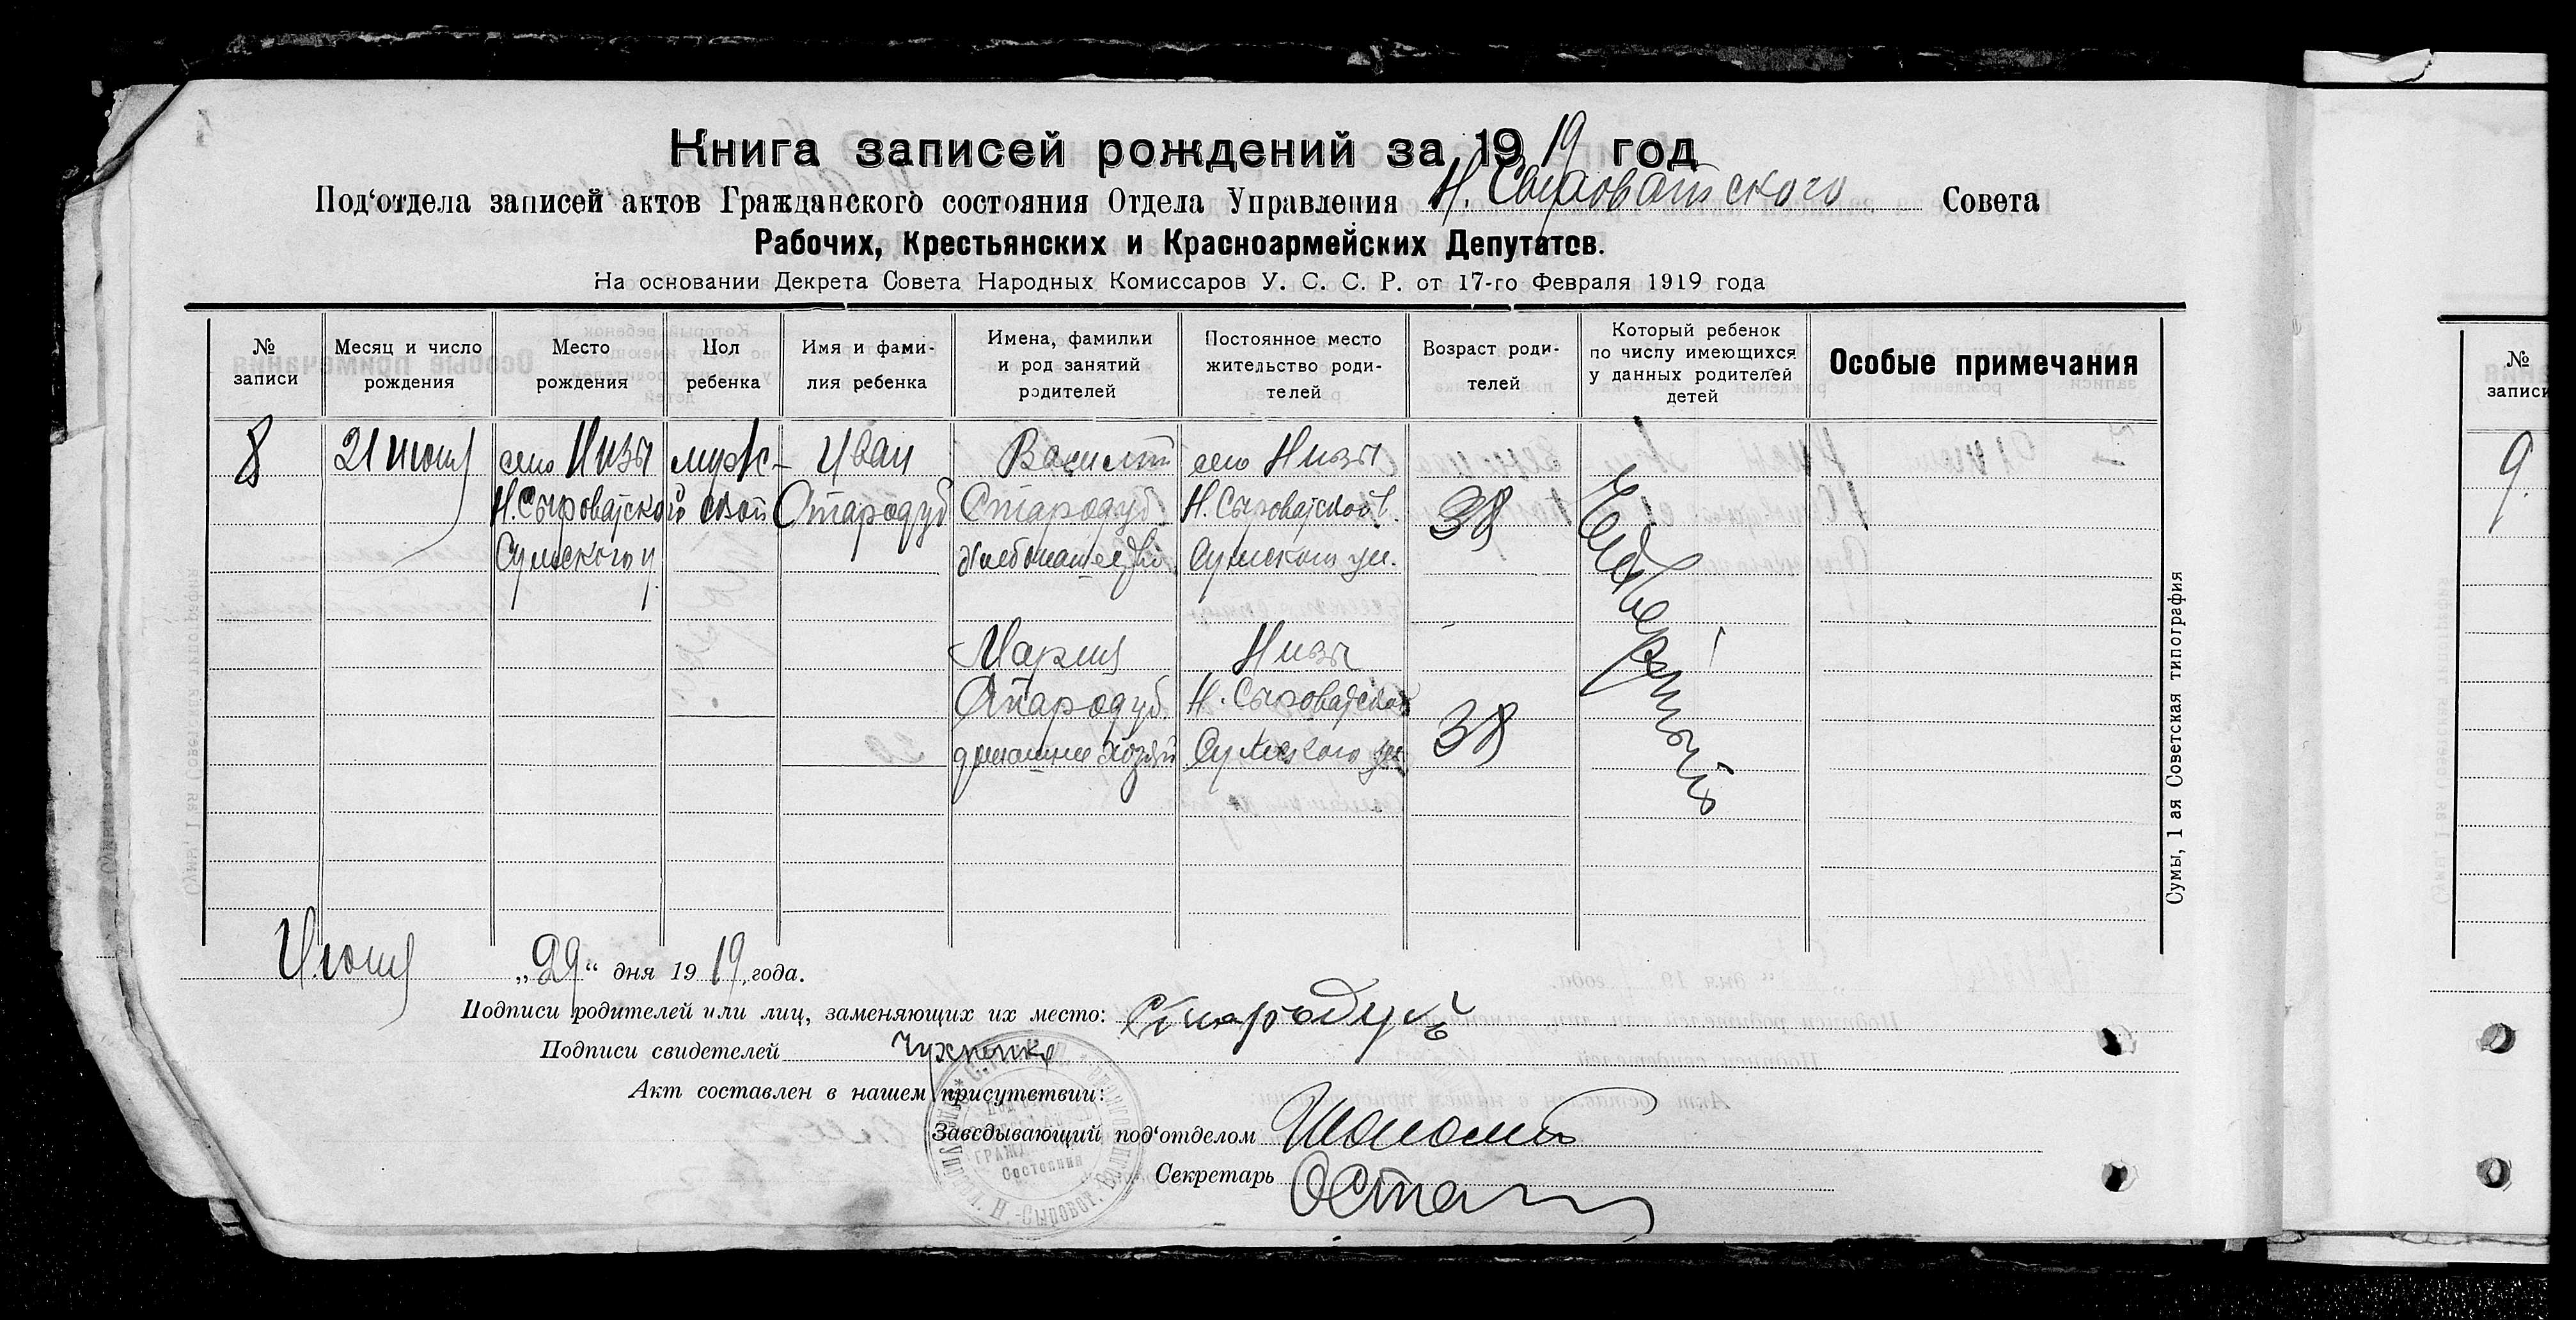 Книга записей рождений за 1919 год
Под'отдела записей актов Гражданского состояния Отдела Управления Н. Сыроватского Совета
Рабочих, Крестьянских и Красноармейских Депутатов.
На основании Декрета Совета Народных Комиссаров У. С. С. Р. от 17-го Февраля 1919 года
№ записи
Месяц и число рождения
Место рождения
Пол ребенка
Имя и фамилия ребенка
Имена, фамилии и род занятий родителей
Постоянное место жительство родителей
Возраст родителей
Который ребенок по числу имеющихся у данных родителей детей
Особые примечания
8
21 июня
село Низы
Н. Сыроватской
Сумского у.
мужской
Иван
Стародуб
Василий
Стародуб
хлебопашец
село Низы
Н. Сыроватской в.
Сумского уи.
38
Четвертый
Мария
Стародуб
домашнее
Низы
Н. Сыроватской
Сумского
38
Июня „29“ дня 1919 года.
Подписи родителей или лиц, заменяющих их место: Стародубъ
Подписи свидетелей
Акт составлен в нашем присутствии:
Заведывающий под'отделом
Секретарь
Состояния
Сумы, 1 ая Советская типография
№
записи
9.